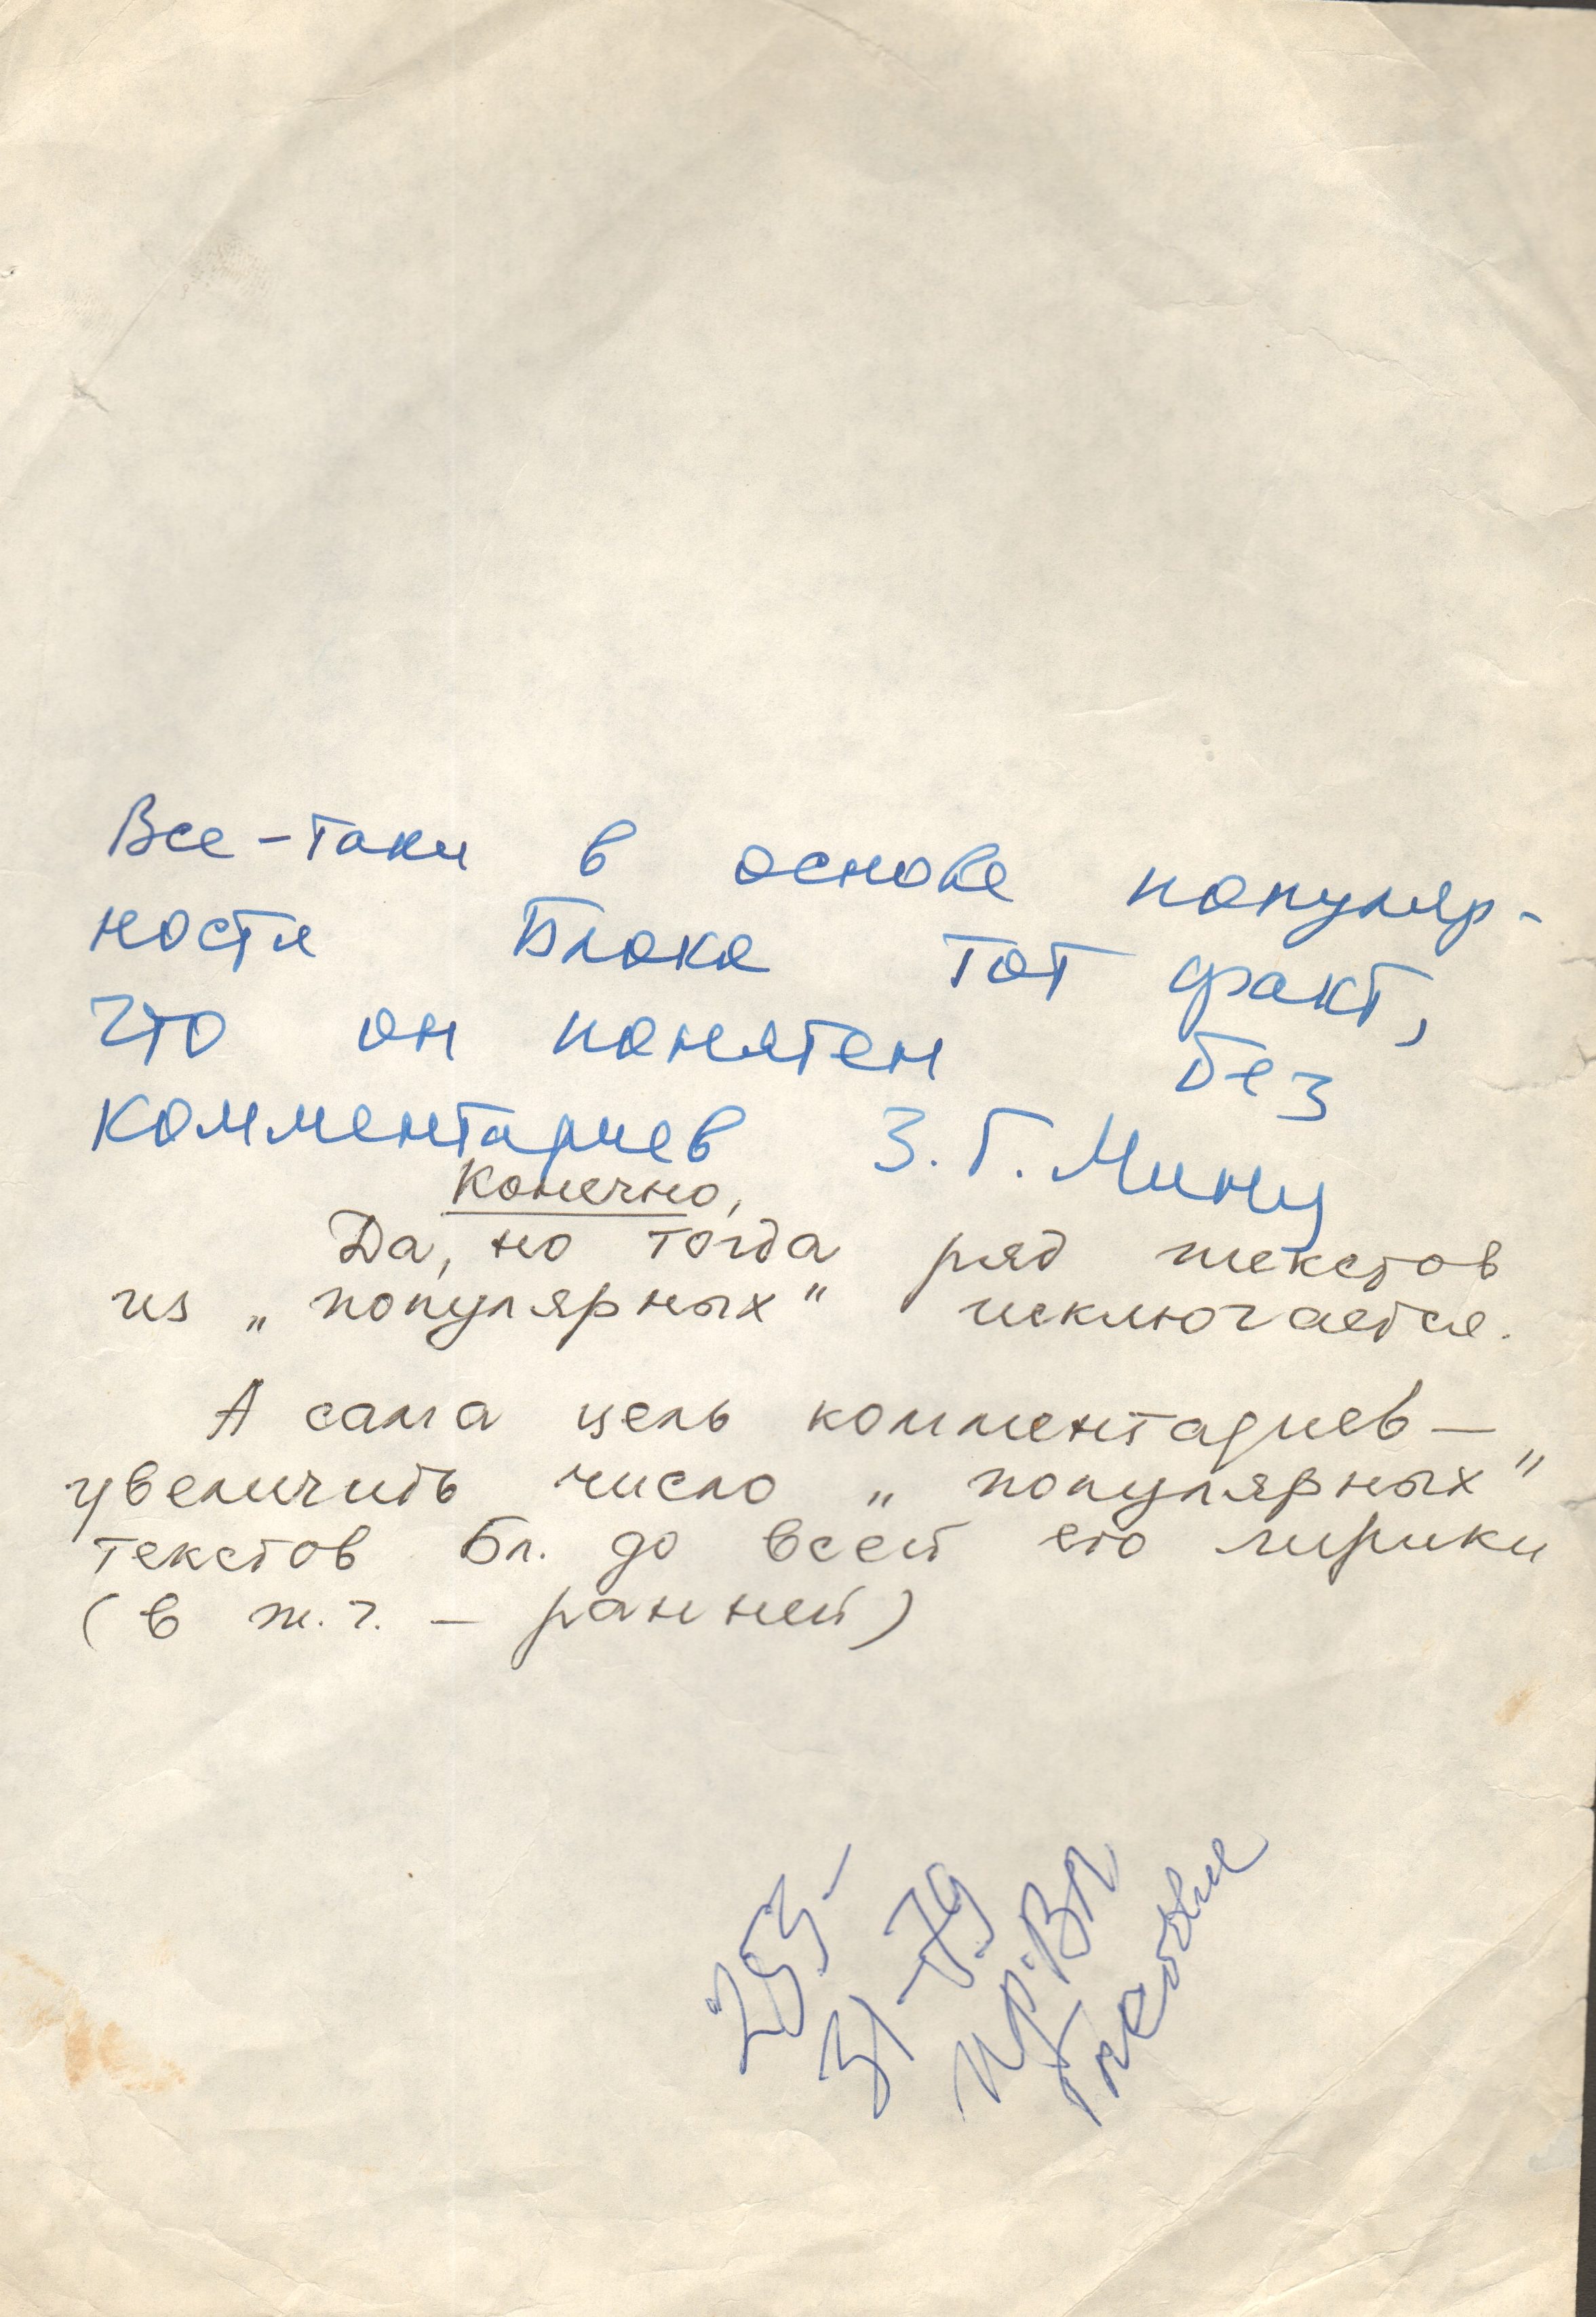 Все-таки в основе популяр-
ности Блока тот факт,
что он понятен без
комментариев З. Г. Минц
Конечно,
Да, но тогда ряд текстов
из „популярных" исключается.
А сама цель комментариев —
увеличить число „популярных"
текстов Бл. до всей его лирики
(в т. ч. – ранней)
253-
31-79